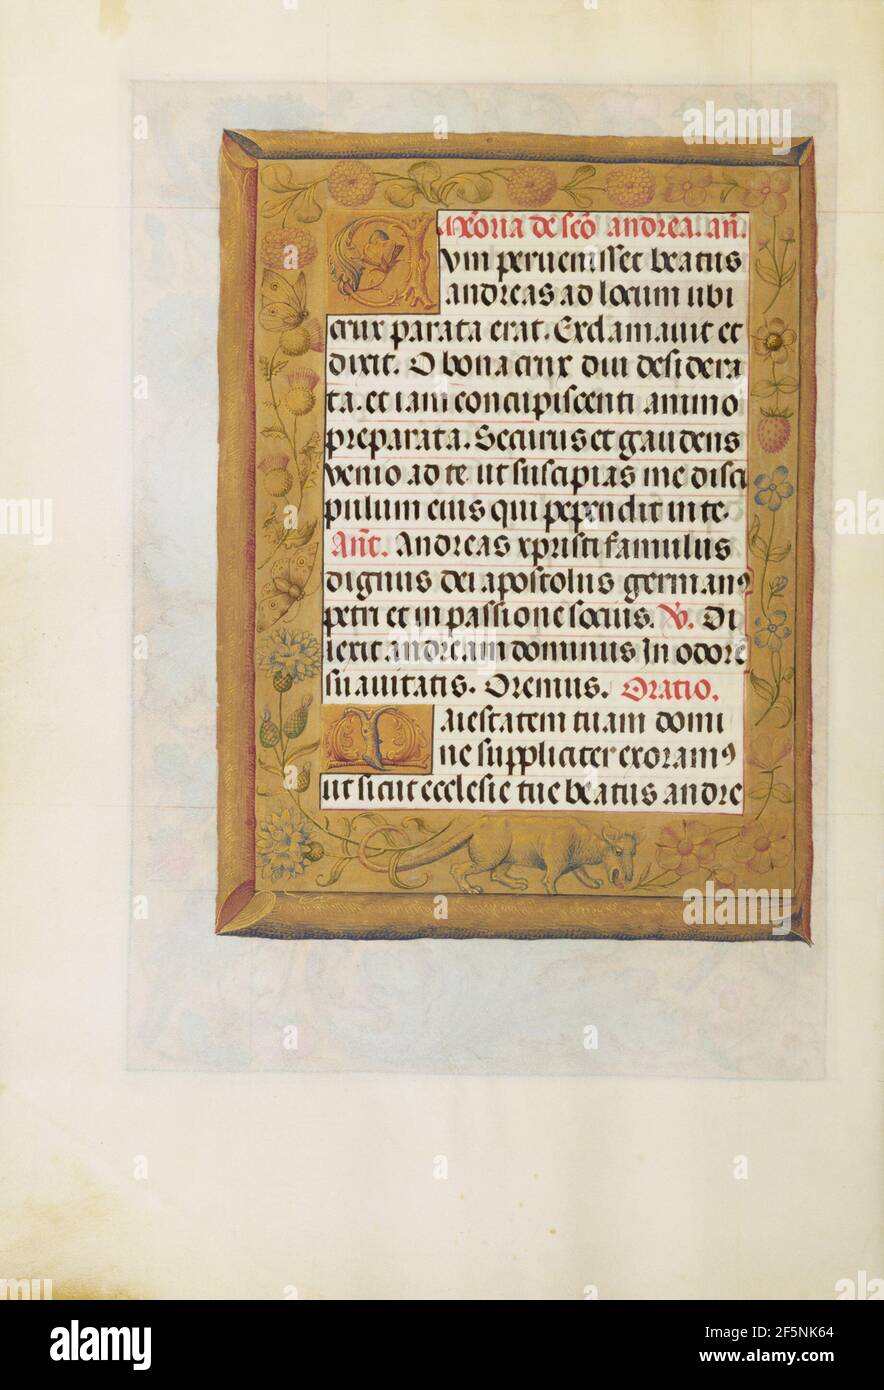 Memoria de sco andrea. an.
Cum peruenisset beatus
andreas ad locum ubi
crux parata erat. Exclamauit et
dixit. O bona crux diu desidera
ta. et iam concupiscenti animo
preparata. Securus et gaudens
venio ad te ut suscipias me disci
pulum eius qui pependit in te.
Ant. Andreas xpristi famulus
dignus dei apostolus germanꝰ
petri et in passione socius. V. Di
lexit andream dominus In odore
suauitatis. Oremus. Oratio.
Maiestatem tuam domi
ne suppliciter exoramꝰ
ut sicut ecclesie tue beatus andre
alamy
Image ID: 2F5NK64
www.alamy.com